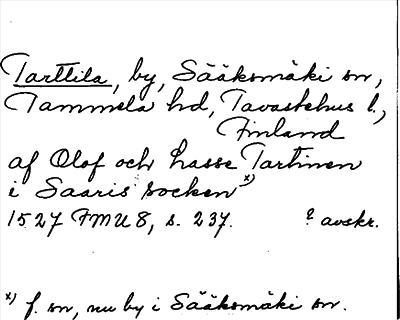 Tarttila, by, Sääksmäki sn,
Tammela hd, Tavastehus l.,
Finland
af Olof och Lasse Tartinen
i Saaris socken x)
1527 FMU 8, s. 237. ? avskr.
x) f. sn, nu by i Sääksmäki sn.